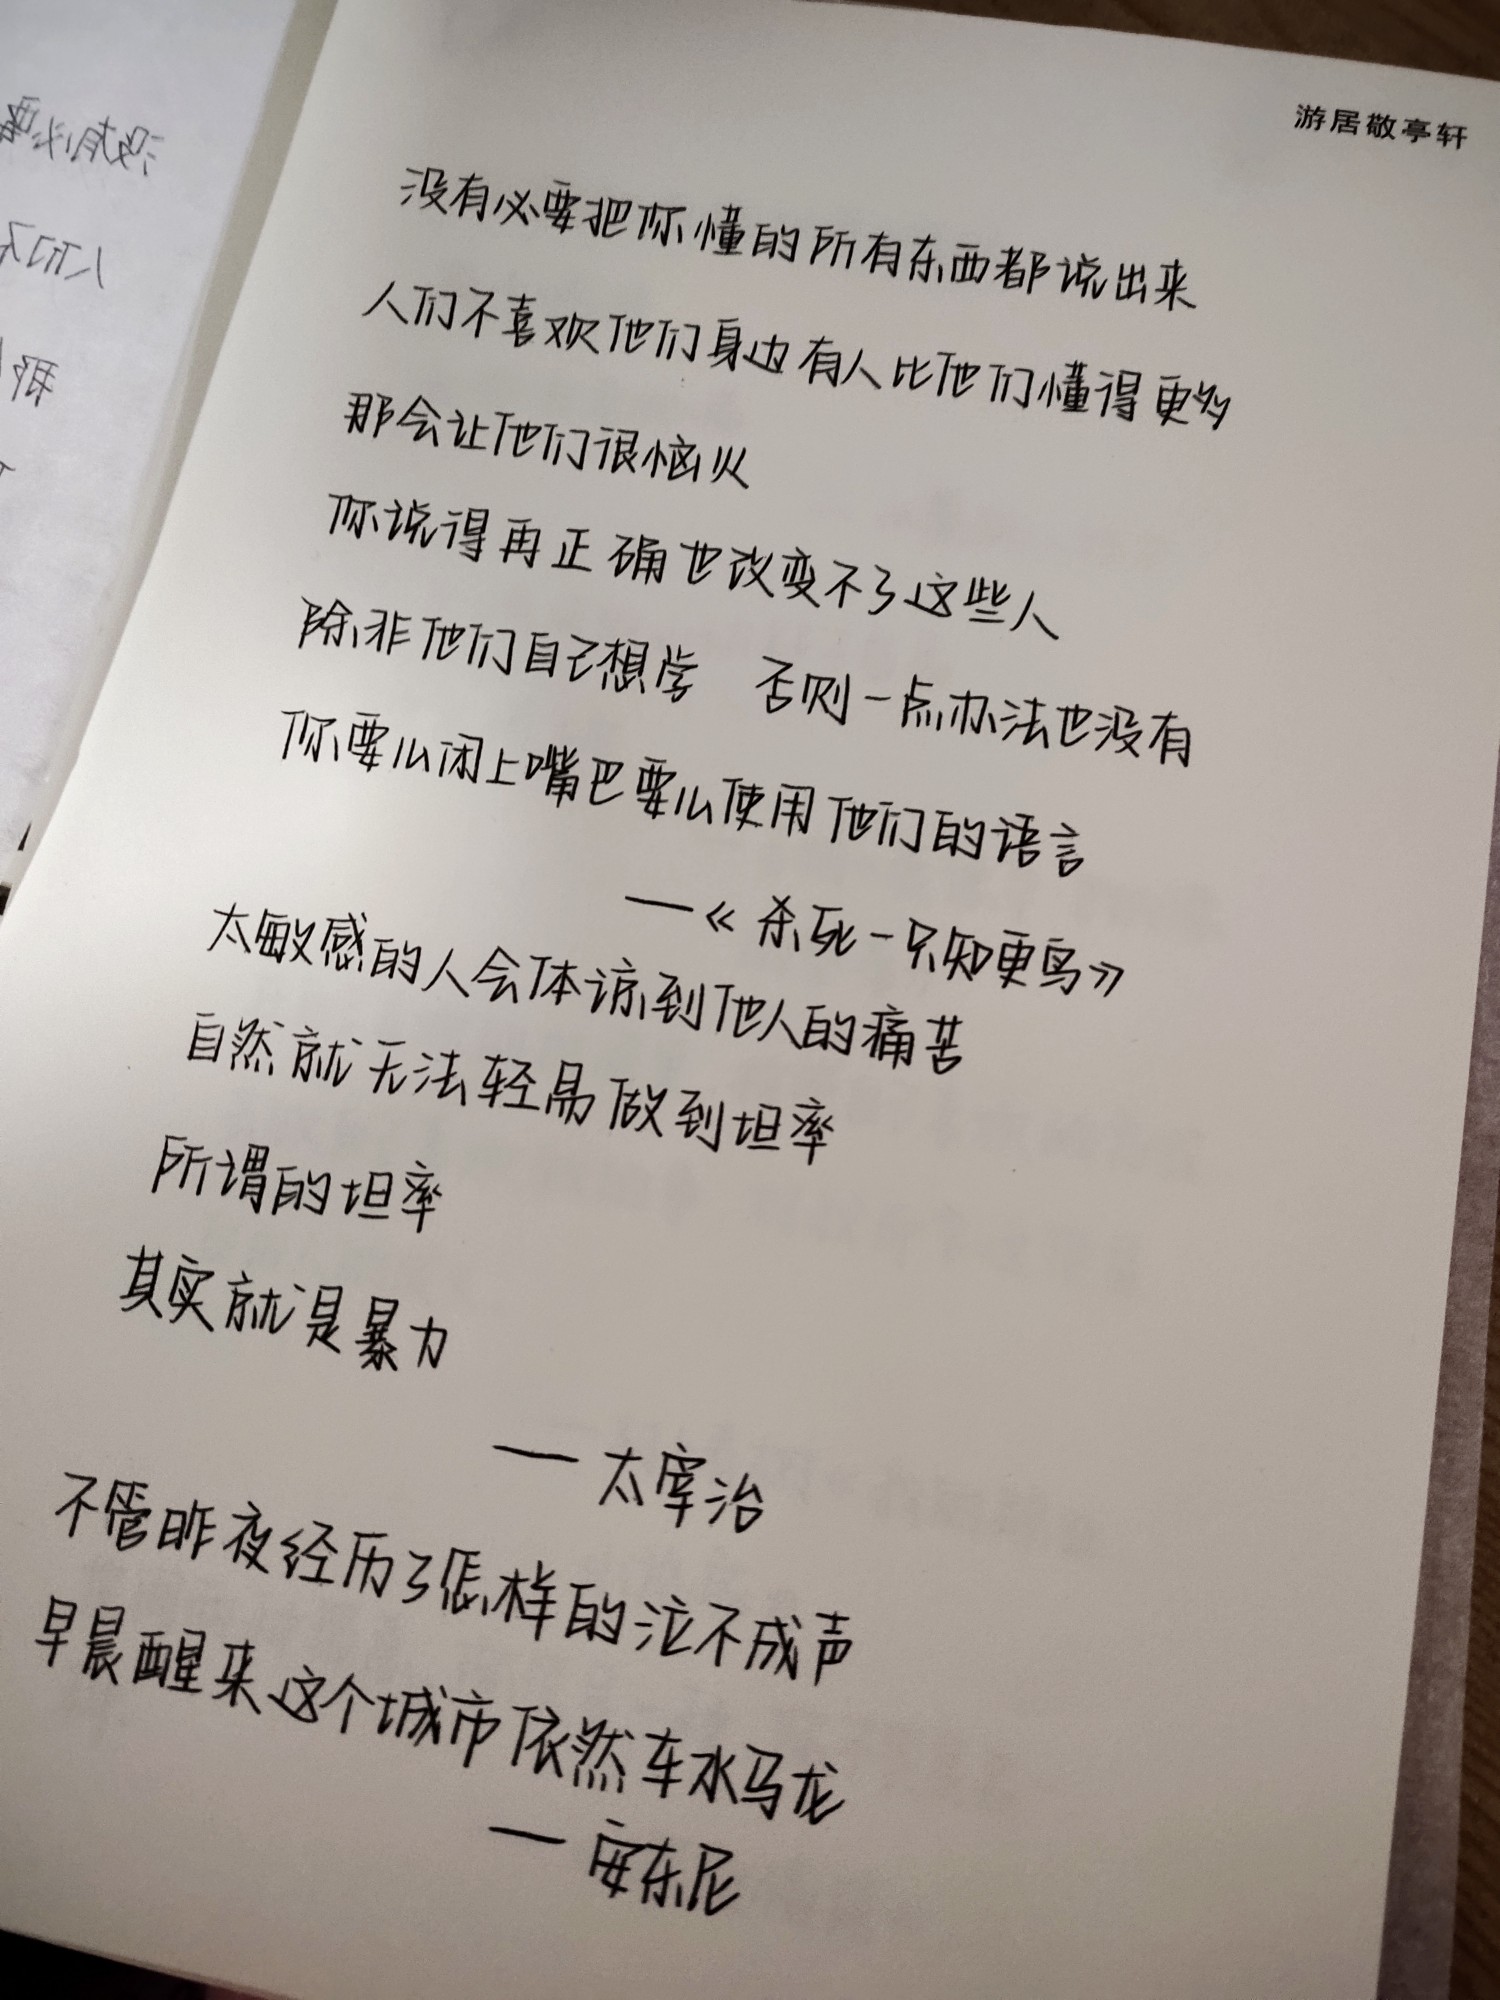 游居敬亭轩
没有必要把你懂的所有东西都说出来
人们不喜欢他们身边有人比他们懂得更多
那会让他们很恼火
你说得再正确也改变不了这些人
除非他们自己想学 否则一点办法也没有
你要么闭上嘴巴要么使用他们的语言
—《杀死一只知更鸟》
太敏感的人会体谅到他人的痛苦
自然就无法轻易做到坦率
所谓的坦率
其实就是暴力
— 太宰治
不管昨夜经历了怎样的泣不成声
早晨醒来这个城市依然车水马龙
— 安东尼